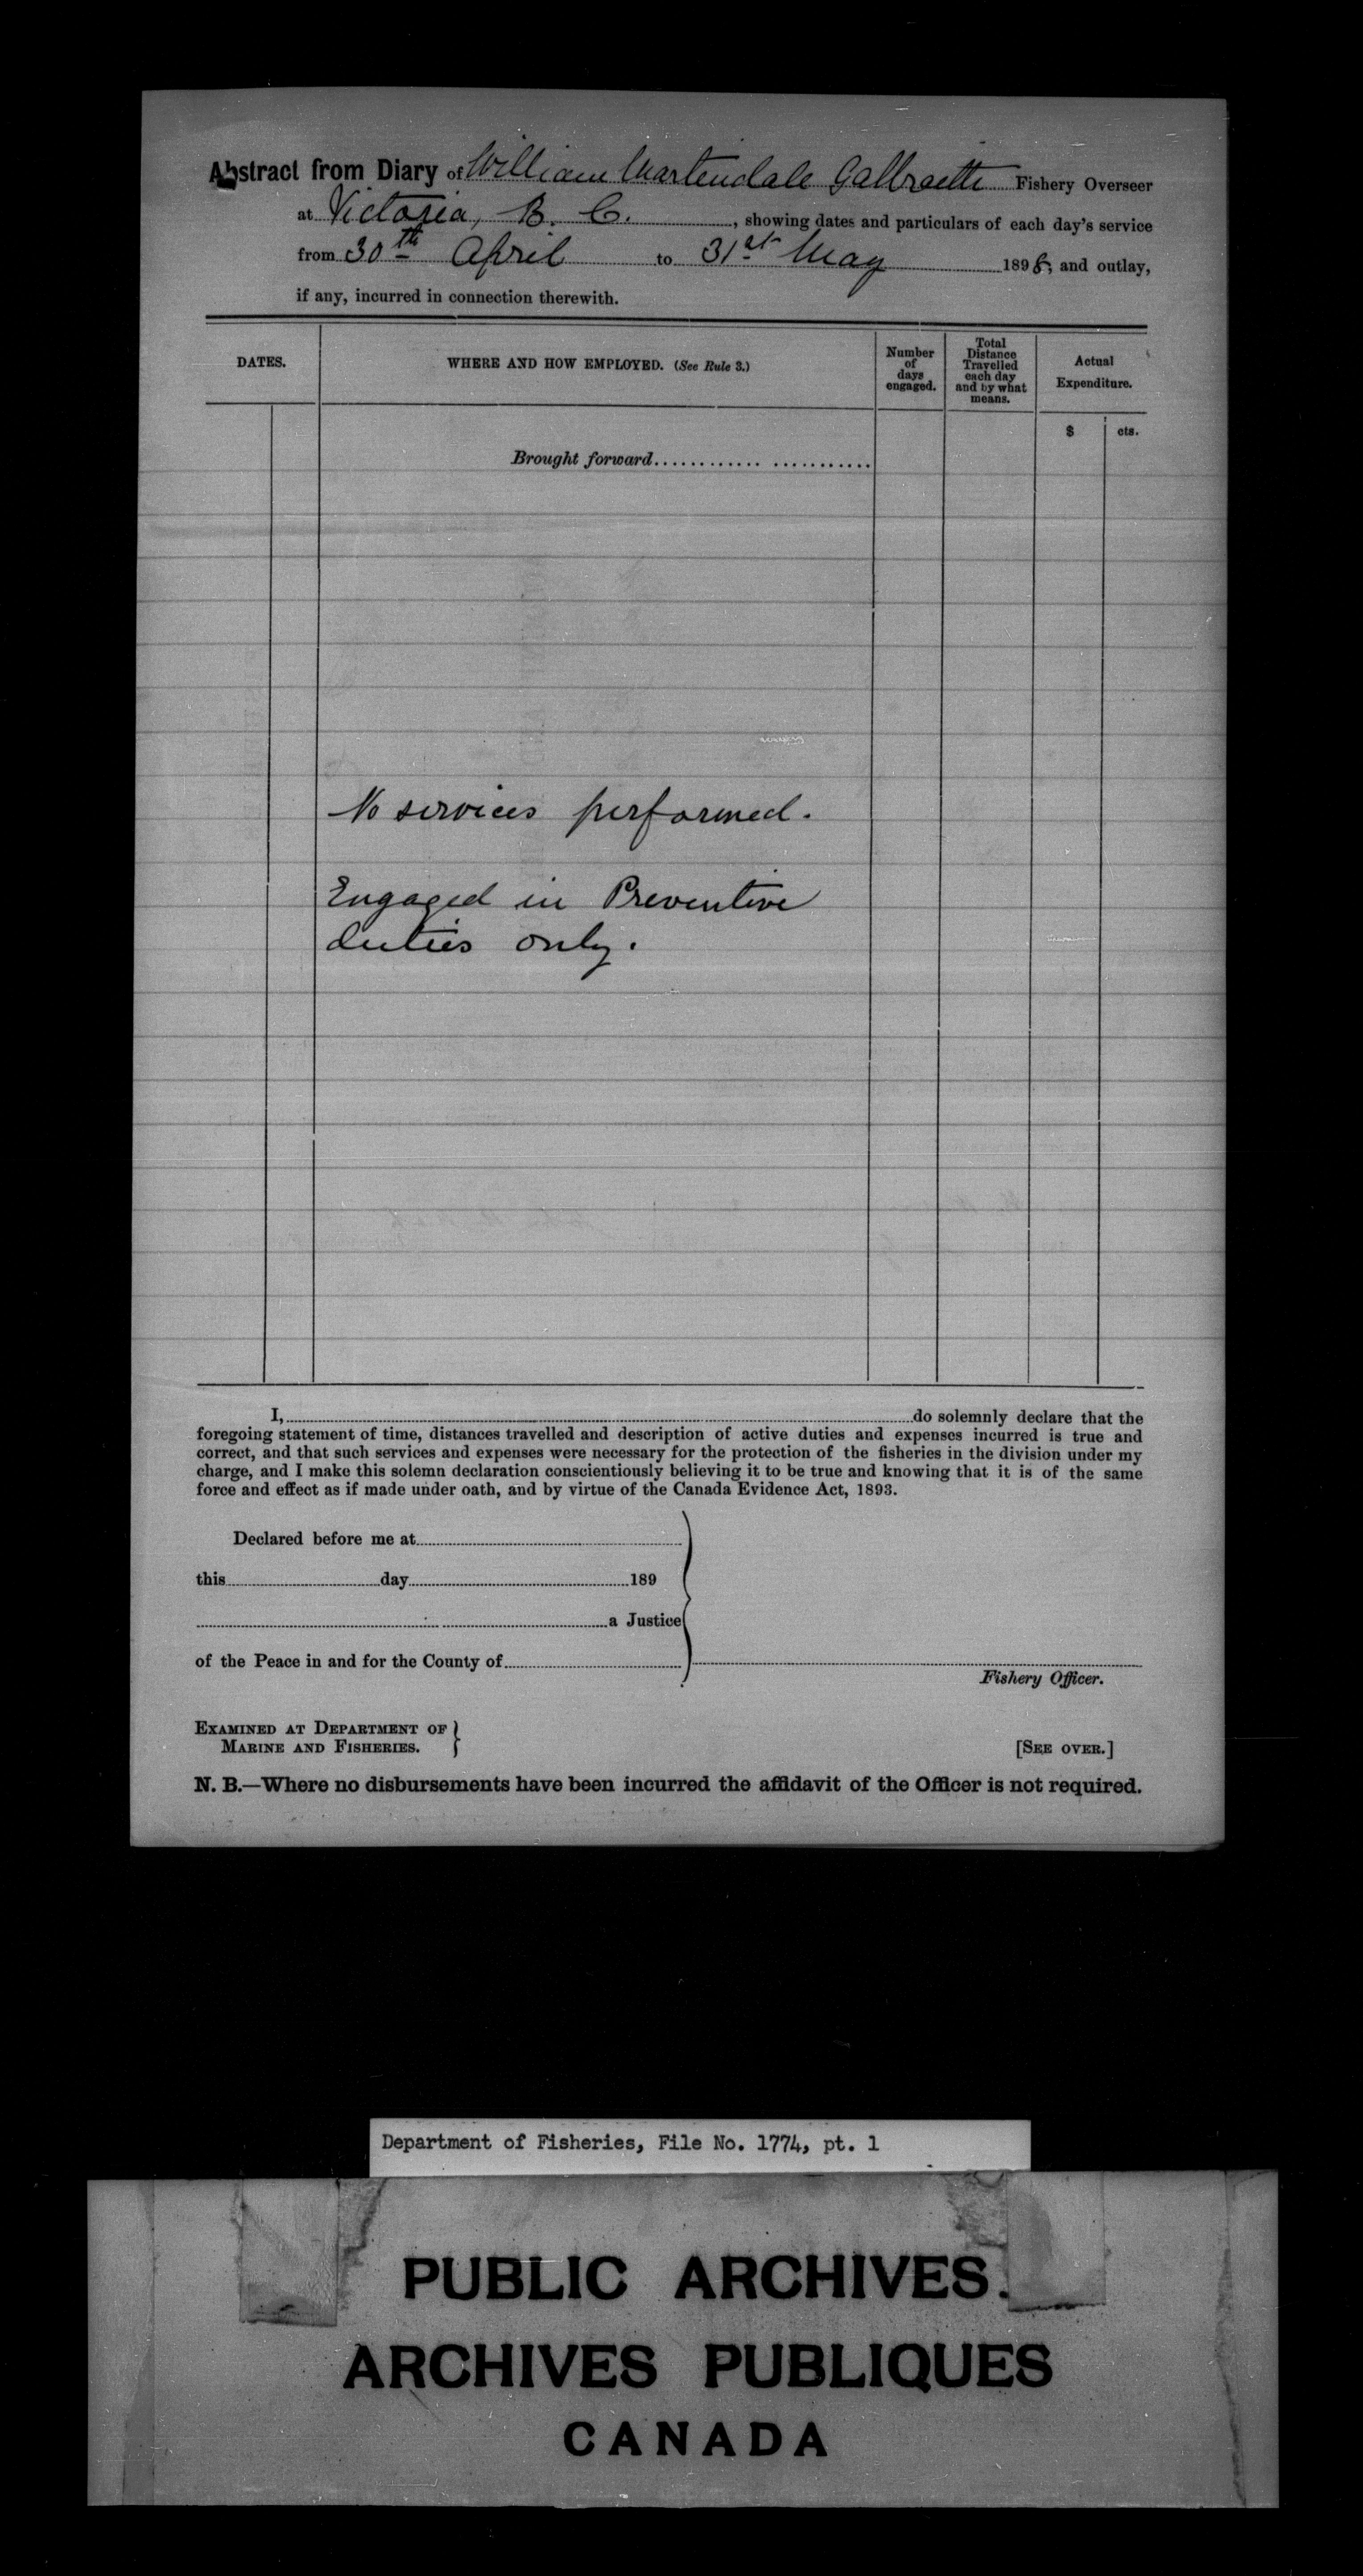 Abstract from Diary of William Martindale Galbraith Fishery Overseer
at Victoria, B. C. , showing dates and particulars of each day's service
from 30th April to 31st May 1898, and outlay,
if any, incurred in connection therewith.
DATES.
WHERE AND HOW EMPLOYED. (See Rule 3.)
Number
of
days
engaged.
Total
Distance
Travelled
each day
and by what
means.
Actual
Expenditure.
$ cts.
Brought forward.......................
No services performed.
Engaged in Preventive
duties only.
I,........do solemnly declare that the
foregoing statement of time, distances travelled and description of active duties and expenses incurred is true and
correct, and that such services and expenses were necessary for the protection of the fisheries in the division under my
charge, and I make this solemn declaration conscientiously believing it to be true and knowing that it is of the same
force and effect as if made under oath, and by virtue of the Canada Evidence Act, 1893.
Declared before me at........
this........day........189
........a Justice
of the Peace in and for the County of........
Fishery Officer.
EXAMINED AT DEPARTMENT OF
MARINE AND FISHERIES.
[SEE OVER.]
N. B.—Where no disbursements have been incurred the affidavit of the Officer is not required.
Department of Fisheries, File No. 1774, pt. 1
PUBLIC ARCHIVES.
ARCHIVES PUBLIQUES
CANADA